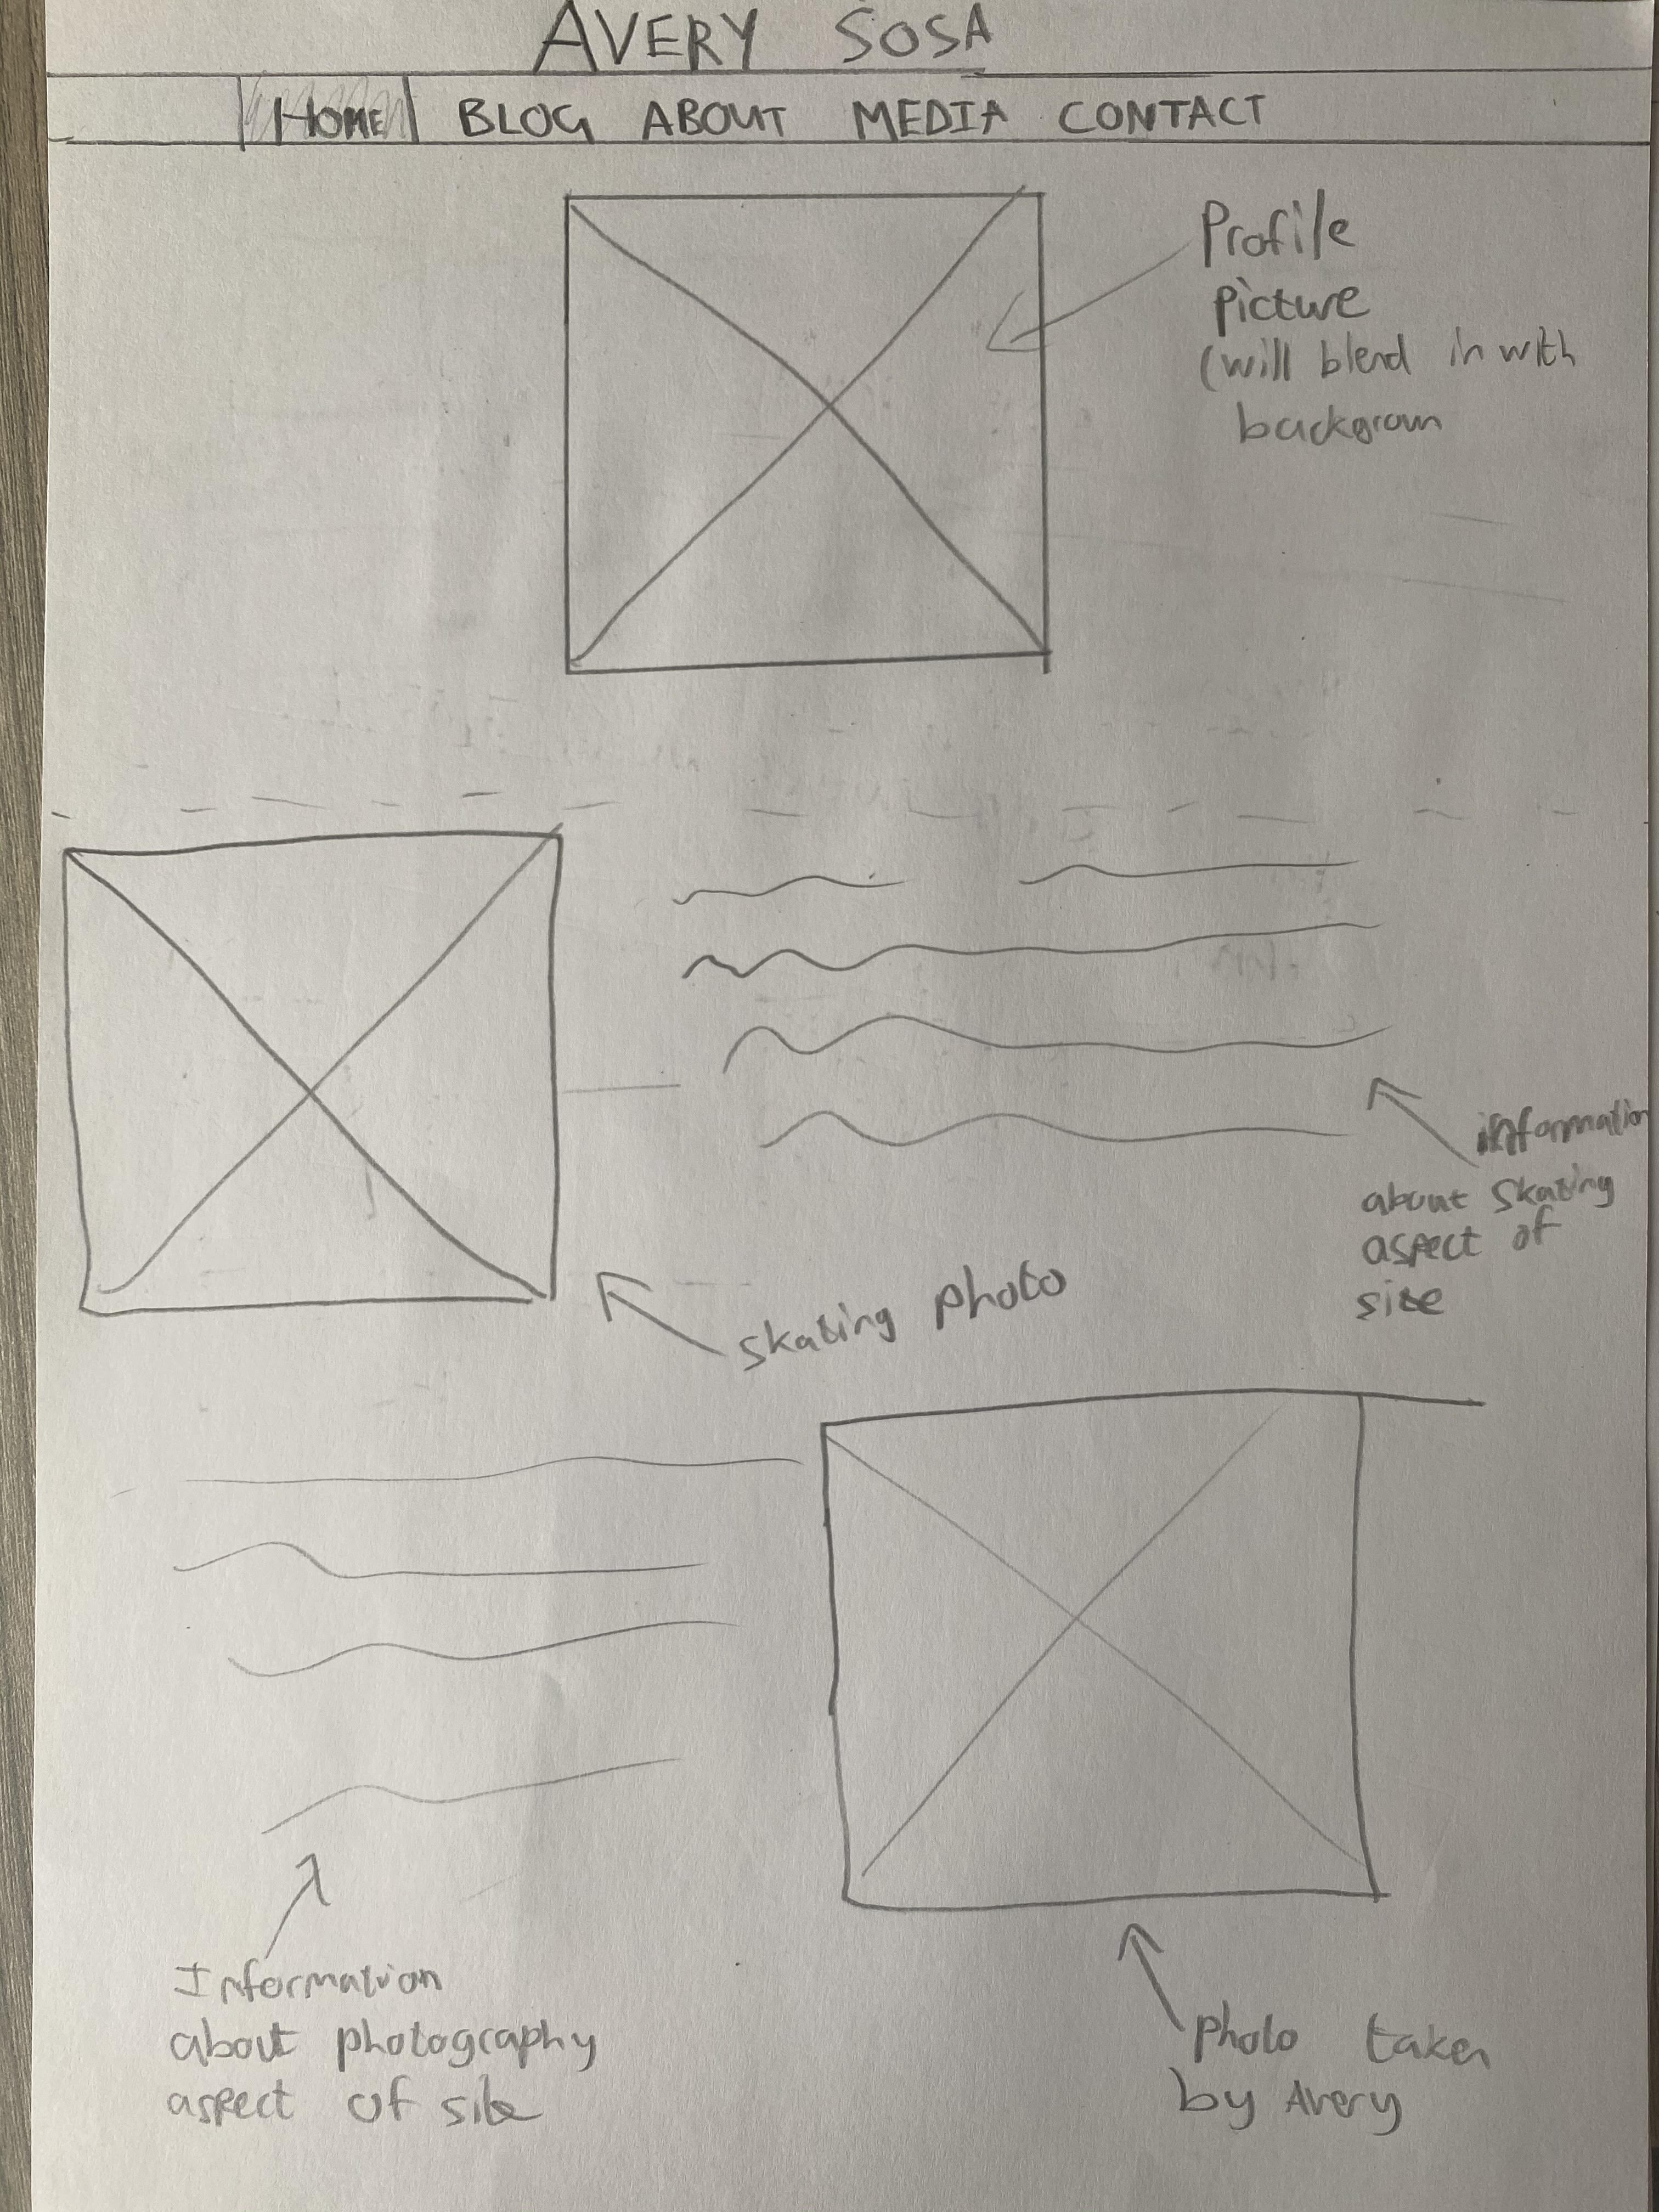 AVERY SOSA
HOME BLOG ABOUT MEDIA CONTACT
Profile
picture
(will blend in with
backgroun
information
about skating
aspect of
site
skating photo
Information
about photography
aspect of site
photo taken
by Avery